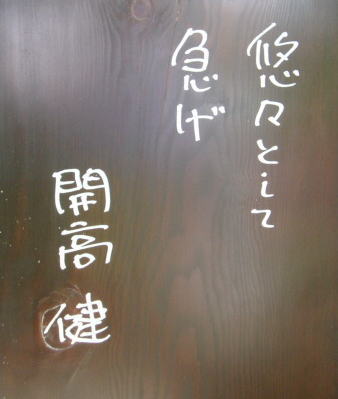 悠々として
急げ
開高健